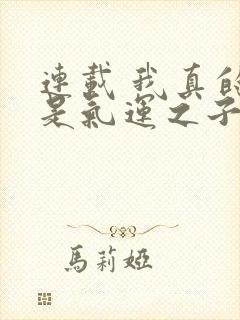 連載 我真的
是氣運之子
馬莉婭